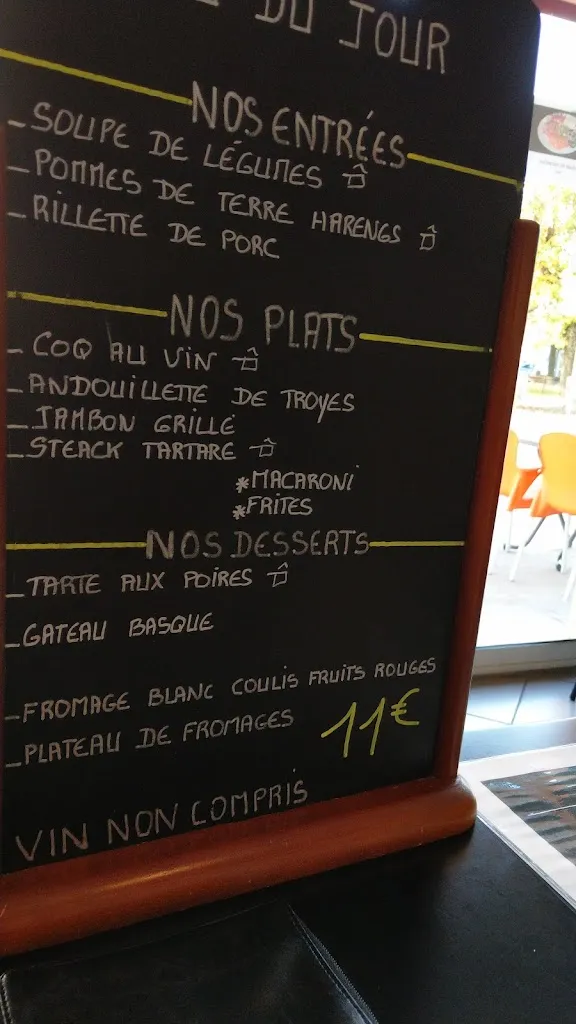 DU JOUR
NOS ENTRÉES
_SOUPE DE LÉGUMES
_POMMES DE TERRE HARENGS
_RILLETTE DE PORC
NOS PLATS
_COQ AU VIN
_ANDOUILLETTE DE TROYES
_JAMBON GRILLÉ
_STEACK TARTARE
*MACARONI
*FRITES
NOS DESSERTS
_TARTE AUX POIRES
_GATEAU BASQUE
_FROMAGE BLANC COULIS FRUITS ROUGES
_PLATEAU DE FROMAGES
11€
VIN NON COMPRIS